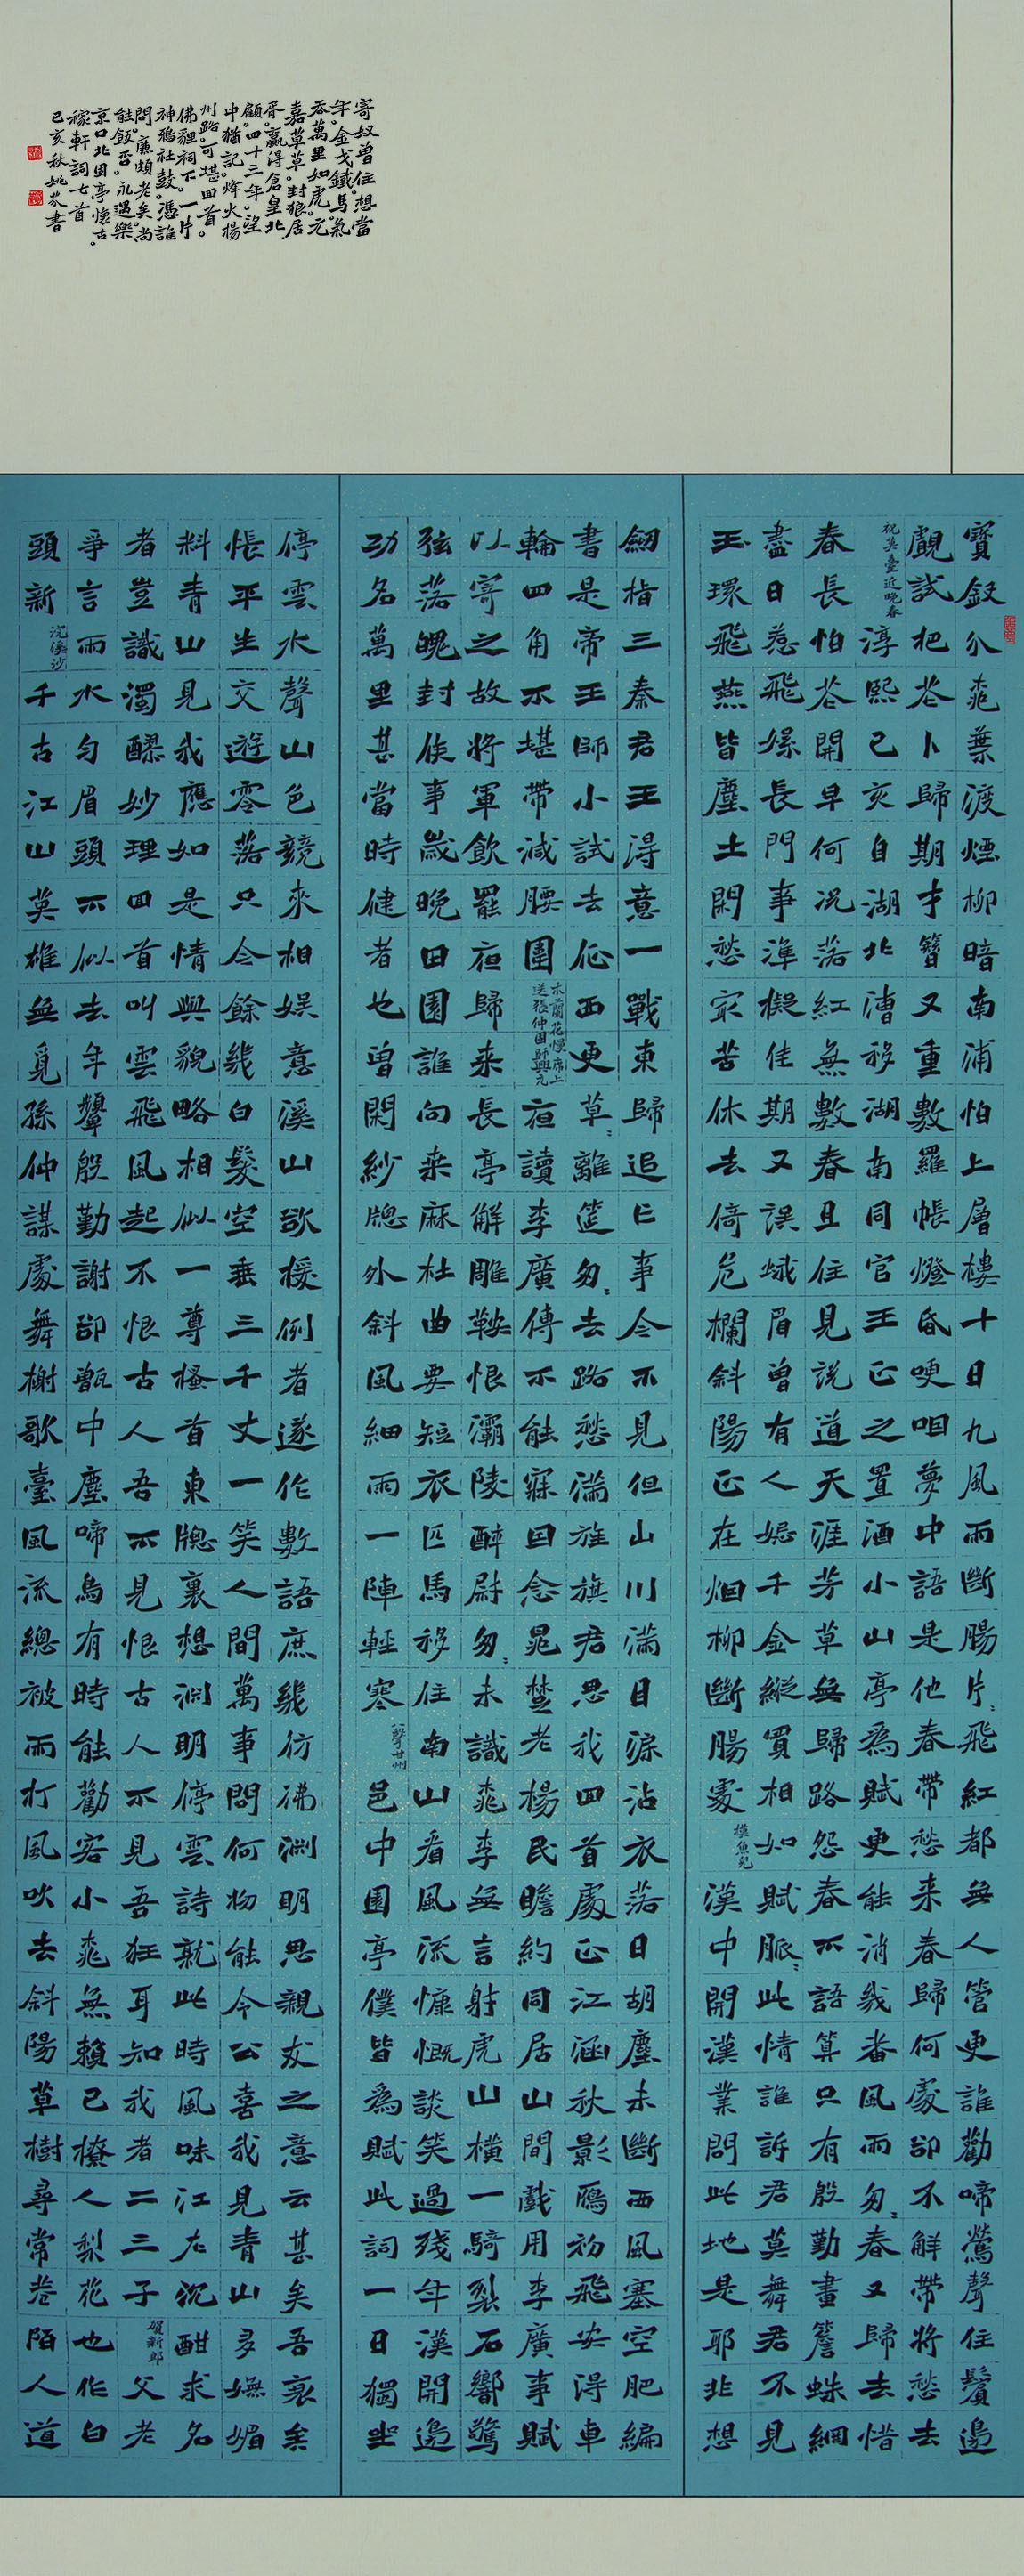 寶釵分桃葉渡煙柳暗南浦怕上層樓十日九風雨斷腸片片飛紅都無人管更誰勸啼鶯聲住鬢邊
覷試把花卜歸期才簪又重數羅帳燈昏哽咽夢中語是他春帶愁來春歸何處卻不解帶將愁去
祝英臺近晚春淳熙己亥自湖北漕移湖南同官王正之置酒小山亭為賦更能消幾番風雨匆匆春又歸去惜
春長怕花開早何況落紅無數春且住見說道天涯芳草無歸路怨春不語算只有殷勤畫簷蛛網
盡日惹飛絮長門事準擬佳期又誤蛾眉曾有人妬千金縱買相如賦脈脈此情誰訴君莫舞君不見
玉環飛燕皆塵土閑愁最苦休去倚危欄斜陽正在烟柳斷腸處摸魚兒漢中開漢業問此地是耶非想
劍指三秦君王得意一戰東歸追亡事今不見但山川滿目淚沾衣落日胡塵未斷西風塞空肥編
書是帝王師小試去征西更草草離筵匆匆去路愁滿旌旗君思我回首處正江涵秋影鴈初飛安得車
輪四角不堪帶減腰圍木蘭花慢席上送張仲固帥興元夜讀李廣傳不能寐因念晁楚老楊民瞻約同居山間戲用李廣事賦
以寄之故將軍飲罷夜歸來長亭解雕鞍恨灞陵醉尉匆匆未識桃李無言射虎山橫一騎裂石響驚
弦落魄封侯事歲晚田園誰向桑麻杜曲要短衣匹馬移住南山看風流慷慨談笑過殘年漢開邊
功名萬里甚當時健者也曾閑紗窗外斜風細雨一陣輕寒八聲甘州邑中園亭僕皆為賦此詞一日獨坐
停雲水聲山色競來相娛意溪山欲援例者遂作數語庶幾彷彿淵明思親友之意云甚矣吾衰矣
悵平生交遊零落只今餘幾白髮空垂三千丈一笑人間萬事問何物能令公喜我見青山多嫵媚
料青山見我應如是情與貌略相似一尊搔首東窗裏想淵明停雲詩就此時風味江左沉酣求名
者豈識濁醪妙理回首叫雲飛風起不恨古人吾不見恨古人不見吾狂耳知我者二三子賀新郎父老
爭言雨水勻眉頭不似去年顰殷勤謝卻甑中塵啼鳥有時能勸客小桃無賴已撩人梨花也作白
頭新浣溪沙千古江山英雄無覓孫仲謀處舞榭歌臺風流總被雨打風吹去斜陽草樹尋常巷陌人道
寄奴曾住。想當
年。金戈鐵馬。氣
吞萬里如虎。元
嘉草草。封狼居
胥。贏得倉皇北
顧。四十三年。望
中猶記。烽火揚
州路。可堪回首。
佛貍祠下。一片
神鴉社鼓。憑誰
問。廉頗老矣。尚
能飯否。永遇樂
京口北固亭懷古。
稼軒詞七首
己亥秋姚芬書